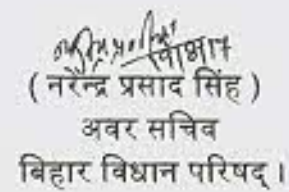 ( नरेन्द्र प्रसाद सिंह )
अवर सचिव
बिहार विधान परिषद् ।